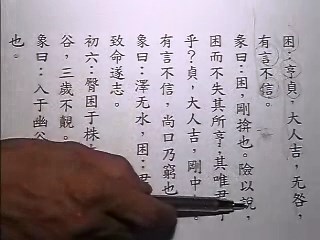 困：亨貞，大人吉，无咎，
有言不信。
彖曰：困，剛揜也。險以說，
困而不失其所亨，其唯君
乎？貞，大人吉，剛中
有言不信，尚口乃窮也
象曰：澤无水，困；君
致命遂志。
初六：臀困于株
谷，三歲不覿。
象曰：入于幽谷
也。